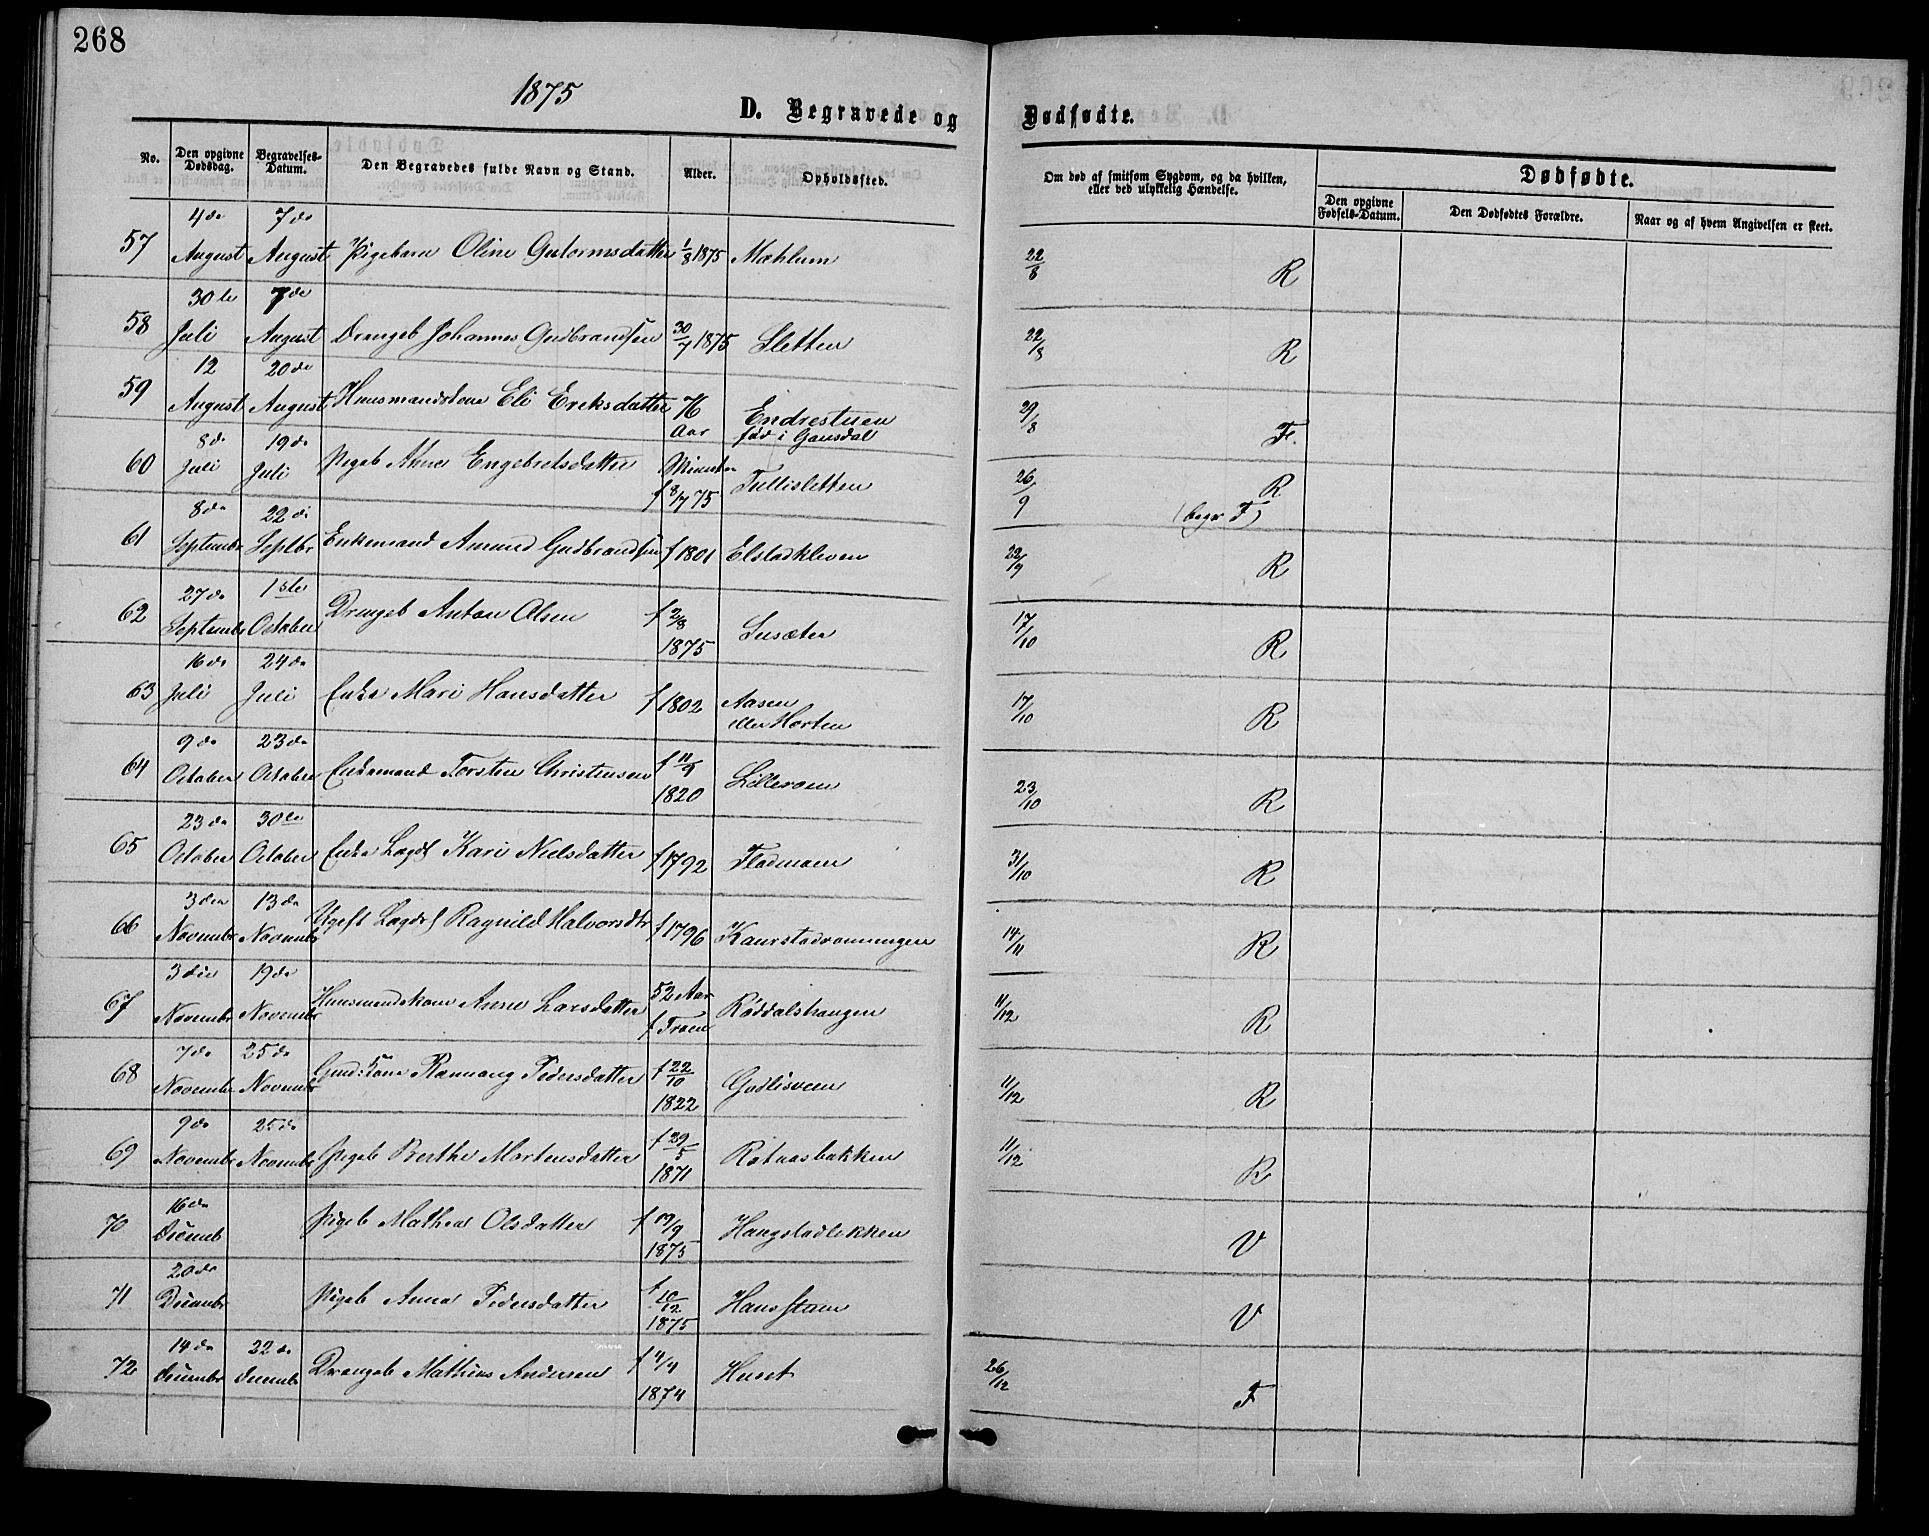 268
1875
D. Begravede og Dødfødte.
No. Den opgivne Dødsdag. Begravelses-Datum. Den Begravedes fulde Navn og Stand. Alder. Opholdssted. Om død af smitsom Sygdom, og da hvilken, eller ved ulykkelig Hændelse. Dødfødte.
Den opgivne Fødsels-Datum. Den Dødfødtes Forældre. Naar og af hvem Angivelsen er skeet.
57 4de August 7de August Pigebarn Oline Gulormsdatter 1/8 1875 Mæhlum 22/8 R
58 30te Juli 7de August Drengeb Johannes Gudbrandsen 30/7 1875 Sletten 22/8 R
59 12 August 20de August Huusmandskone Eli Eriksdatter 76 Aar Endrestuen 29/8 F.
fød i Gausdal
60 8de Juli 19de Juli Pigeb Anne Engebretsdatter f 8/7 75 Tullisletten 26/9 R
(begr F)
61 8de Septembr 22de Septbr Enkemand Amund Gudbrandsen f 1801 Elstadkleven R
62 27de Septembr 1ste October Drengeb Anton Olsen f 2/8 1875 Lusæter 17/10 R
63 16de Juli 24de Juli Enke Mari Hansdatter f 1802 Aasen 17/10 R
64 9de October 23de October Enkemand Torsten Christensen 1820 Lilleroen 23/10 R
65 23de October 30te October Enke Lægdsl Kari Nielsdatter f 1792 Fladmoen 31/10 R
66 3die Novembr 13de Novembr Ugift Lægdsl Ragnild Halvorsdtr f 1796 Kaurstadrønningen 14/11 R
67 3die Novembr 19de Novembr Huusmandskone Anne Larsdatter 52 Aar Røddalshaugen 11/12 R
68 7de Novembr 25de Novembr Gmd: Kone Rannang Pedersdatter f 22/10 1822 Godlisveen 11/12 R
69 9de Novembr 25de Novembr Pigeb Berthe Mortensdatter f 29/5 1871 Rotuasbakken 11/12 R
70 16de Decemb Pigeb Mathea Olsdatter f 19/9 1875 Haugstadlykken V
71 20de Decembr Pigeb Anne Pedersdatter f 10/12 1875 Hansstuen V
72 14de Decembr 22de Decemb Drengeb Mathias Andersen f 4/4 1874 Huset 26/12 F